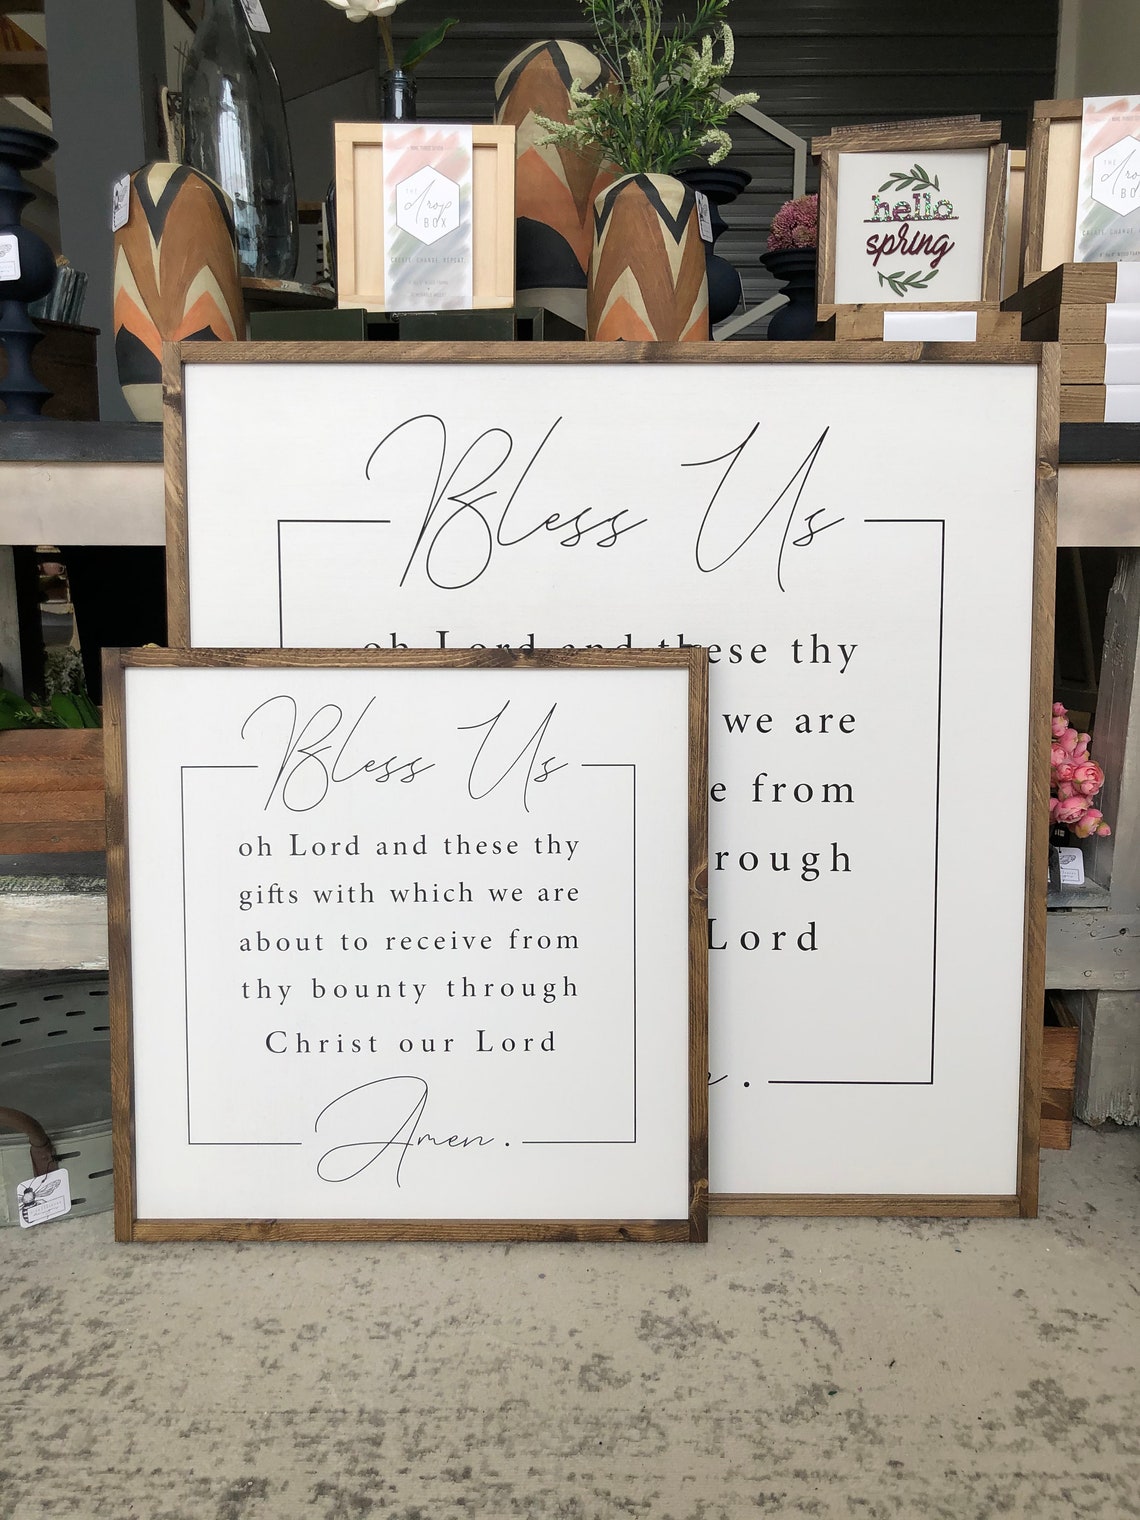 THE
drop
BOX
CREATE. CHANGE. REPEAT.
hello
spring
THE
drop
BOX
Bless Us
oh Lord and these thy
we are
e from
rough
Lord
.
Bless Us
oh Lord and these thy
gifts with which we are
about to receive from
thy bounty through
Christ our Lord
Amen.